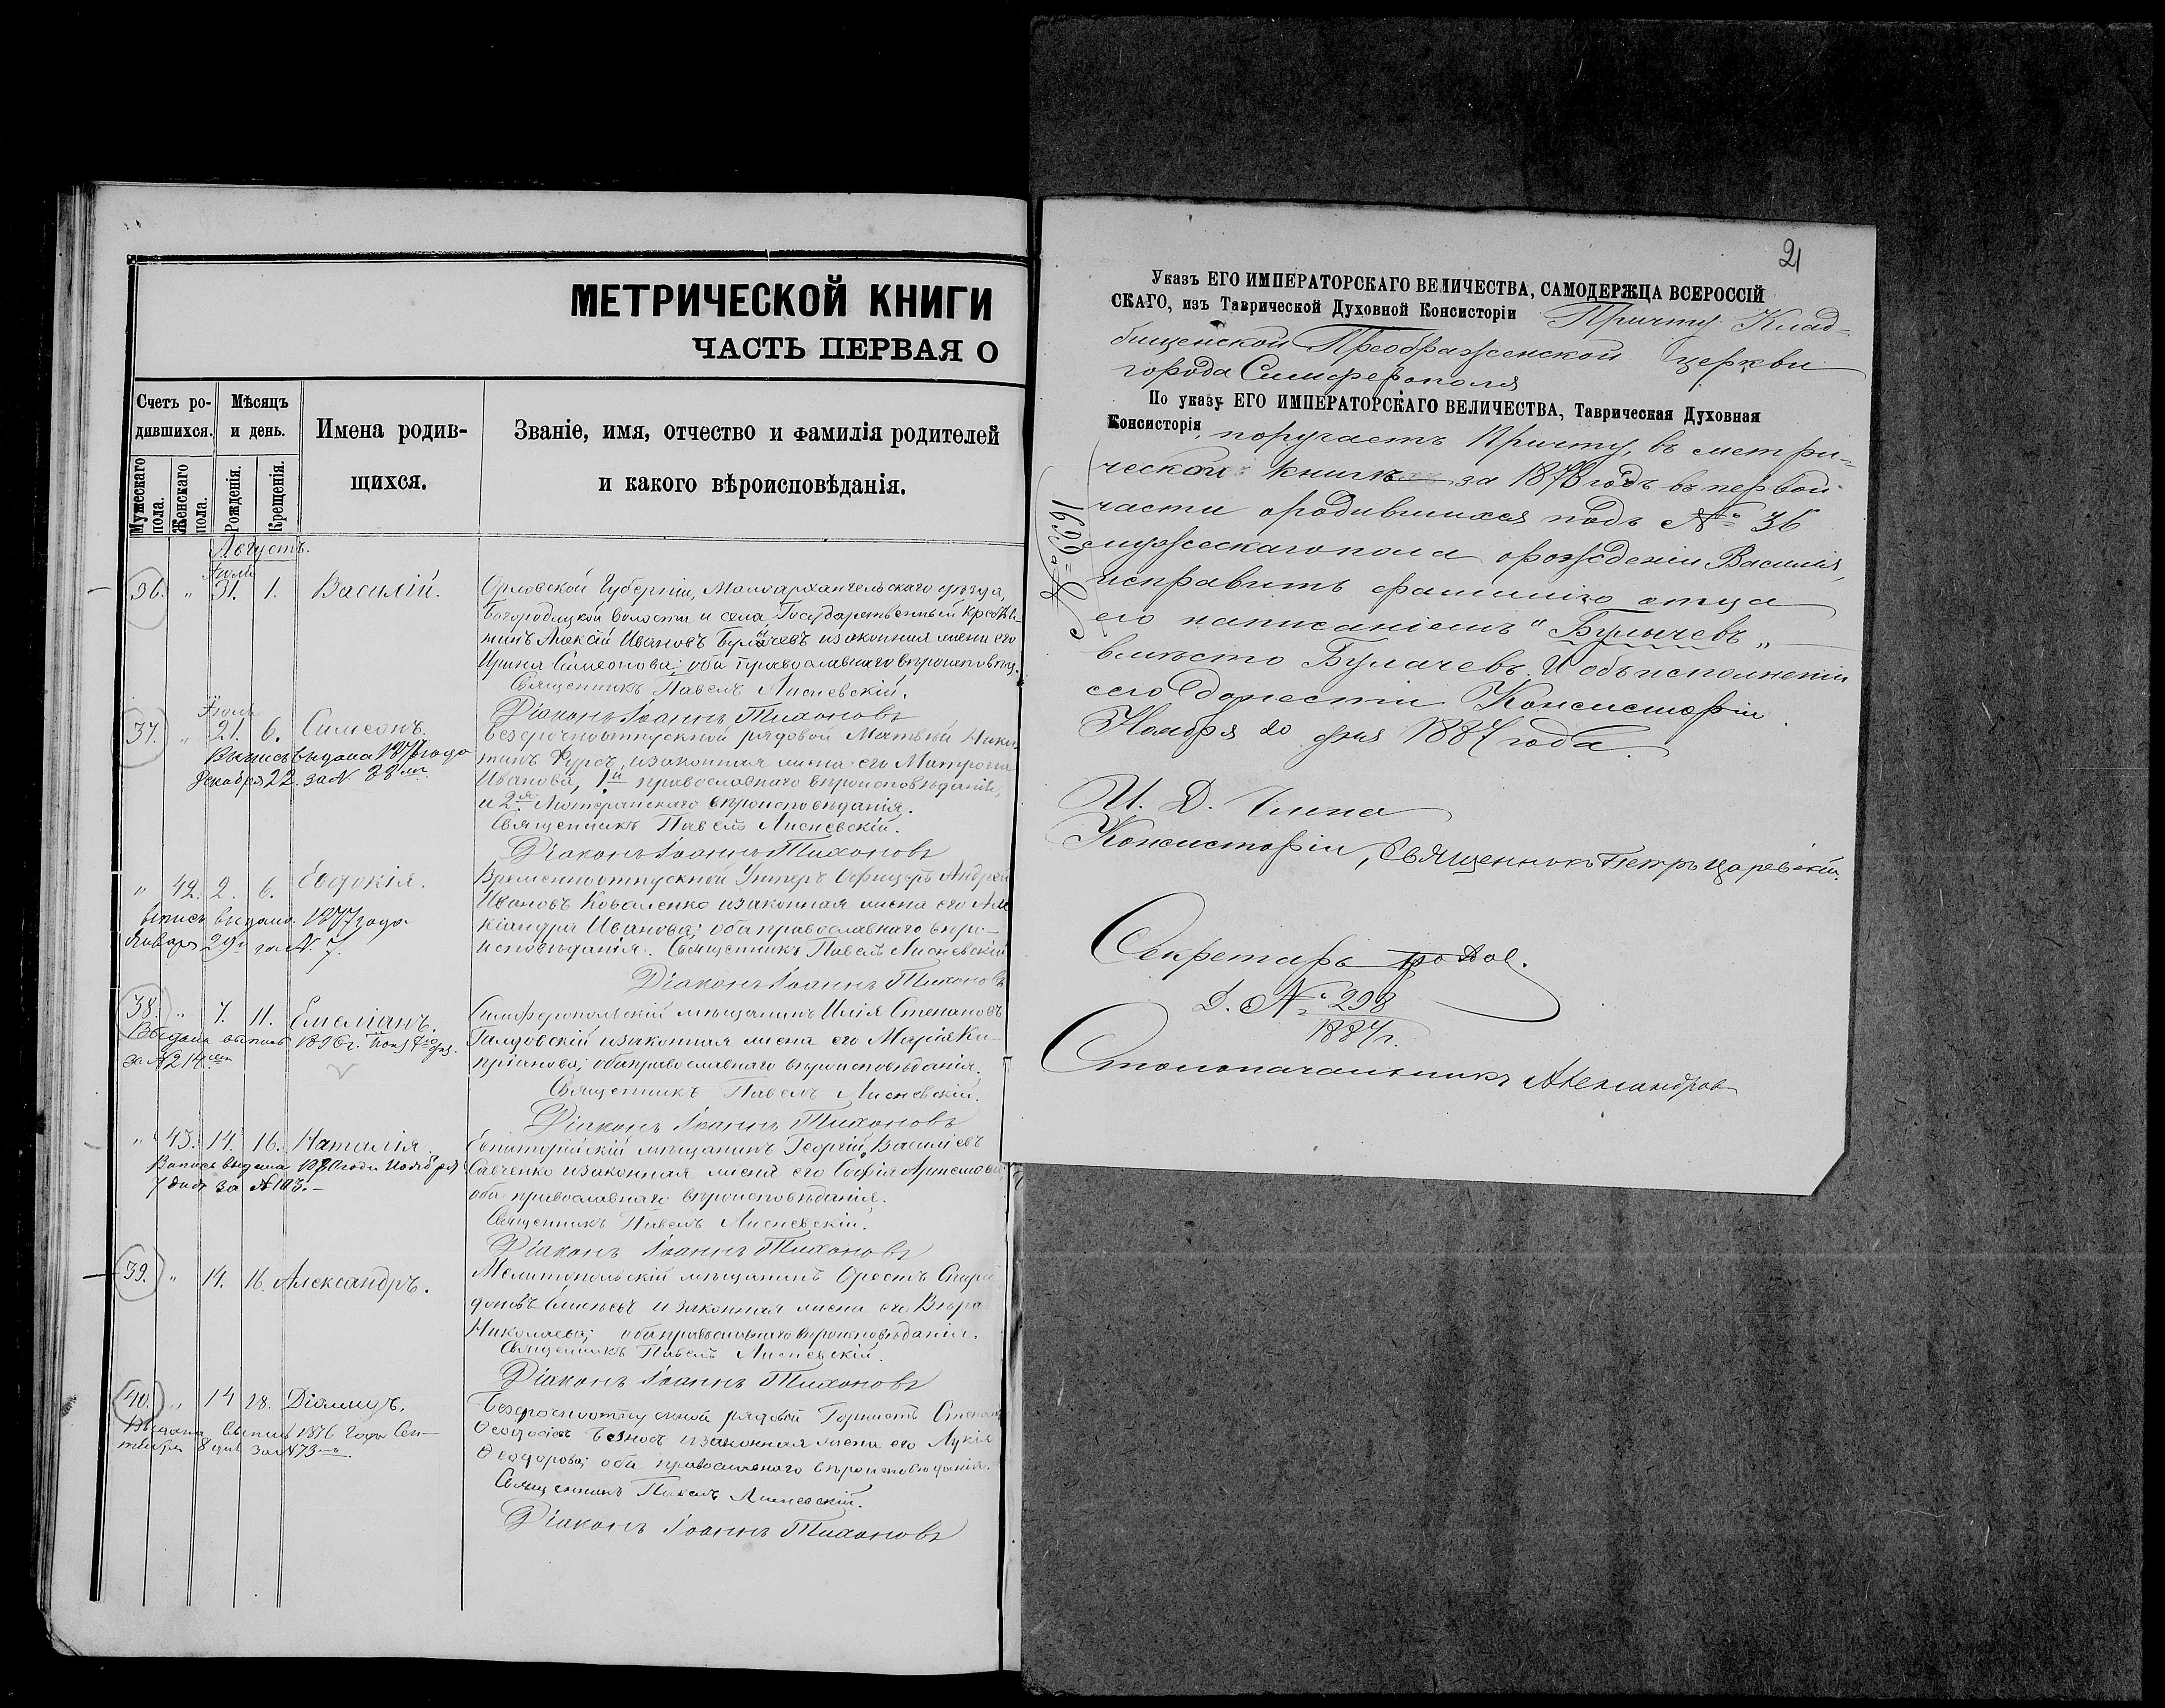 МЕТРИЧЕСКОЙ КНИГИ
ЧАСТЬ ПЕРВАЯ О
Счетъ ро-
дившихся.
Мѣсяцъ
и день.
Имена родив-
щихся.
Званіе, имя, отчество и фамилія родителей
и какого вѣроисповѣданія.
Мужескаго пола.
Женскаго пола.
Рожденія.
Крещенія.
Августъ.
Іюля
36. " 31. 1. Василій.
Орловской Губерніи, Малоархангельскаго уѣзда,
Богородицкой волости и села, Государственный кресть-
янинъ Алексій Ивановъ изаконная жена его
Ирина Симеонова; оба православнаго вѣроисповѣд.
Священникъ Павелъ Лисневскій.
Діаконъ Іоаннъ Тихоновъ
Іюля
37. " 21. 6. Симеонъ.
Выпись выдана года
Декабря 22. за №
Безсрочноотпускной рядовой Матвій Ники-
тинъ изаконная жена его Матрона
Иванова, 1й православнаго вѣроисповѣданія,
и 2я Лютеранскаго вѣроисповѣданія.
Священникъ Павелъ Лисневскій.
Діаконъ Іоаннъ Тихоновъ
" 42. 2. 6. Евдокія.
выпись выдана 1877 года
Января 29 за № 7.
Временноотпускной Унтеръ Офицеръ Андрей
Ивановъ Коваленко изаконная жена его Але
ксандра Иванова; оба православнаго вѣро-
исповѣданія. Священникъ Павелъ Лисневскій
Діаконъ Іоаннъ Тихоновъ
38. " 7. 11. Емеліанъ.
Выдана выпись
за №
Симферопольскій мѣщанинъ Илія Степановъ
изаконная жена его Марія Ки-
пріанова; оба православнаго вѣроисповѣданія.
Священникъ Павелъ Лисневскій.
Діаконъ Іоаннъ Тихоновъ
" 43. 14. 16. Наталія.
Выпись выдана года Ноября
7 дня за №
Евпаторійскій мѣщанинъ Георгій Василіевъ
Савченко изаконная жена его Софія Артемова;
оба православнаго вѣроисповѣданія.
Священникъ Павелъ Лисневскій.
Діаконъ Іоаннъ Тихоновъ
39. " 14. 16. Александръ.
Мелитопольскій мѣщанинъ Орестъ Спири
доновъ изаконная жена его Вѣра
Николаева; оба православнаго вѣроисповѣданія.
Священникъ Павелъ Лисневскій.
Діаконъ Іоаннъ Тихоновъ
40. " 14 28. Діомидъ.
Выдана выпись 1876 года Сен-
тября 8 дня за № 73
Безсрочноотпускной рядовой Степанъ
Ѳеодосіевъ изаконная жена его Лукія
Ѳеодорова; оба православнаго вѣроисповѣданія.
Священникъ Павелъ Лисневскій.
Діаконъ Іоаннъ Тихоновъ
21
Указъ ЕГО ИМПЕРАТОРСКАГО ВЕЛИЧЕСТВА, САМОДЕРЖЦА ВСЕРОССІЙ
СКАГО, изъ Таврической Духовной Консисторіи Причту Клад-
бищенской Преображенской церкви
города Симферополя
По указу ЕГО ИМПЕРАТОРСКАГО ВЕЛИЧЕСТВА, Таврическая Духовная
Консисторія, поручаетъ Причту, въ метри-
ческой книгѣ за 1876 годъ въ первой
части о родившихся подъ № 36
мужескаго пола о рожденіи Василія,
исправить фамилію отца
его написаніемъ "Булычевъ"
вмѣсто Булачевъ. И объ исполненіи
сего донести Консисторіи.
Ноября 20 дня 1887 года.
И. Д. Члена
Консисторіи, Священникъ Петръ Царевскій.
Секретарь
Д. № 298
1887 г.
Столоначальникъ Александровъ